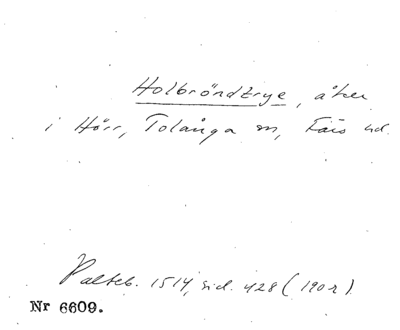 Holbröndtrye, åker
i Hörr, Tolånga sn, Färs hd.
Palteb. 1514, sid. 428 (190r).
Nr 6609.